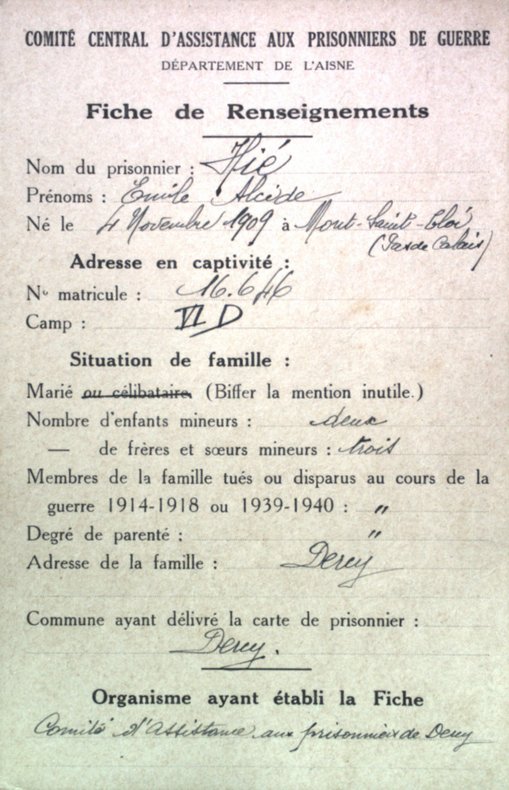 COMITÉ CENTRAL D'ASSISTANCE AUX PRISONNIERS DE GUERRE
DÉPARTEMENT DE L'AISNE
Fiche de Renseignements
Nom du prisonnier : Hié
Prénoms : Emile Alcide
Né le 4 Novembre 1909 à Mont-Saint-Eloi
(Pas de Calais)
Adresse en captivité :
No matricule : 16.646
Camp : VI D
Situation de famille :
Marié ou célibataire. (Biffer la mention inutile.)
Nombre d'enfants mineurs : deux
— de frères et sœurs mineurs : trois
Membres de la famille tués ou disparus au cours de la
guerre 1914-1918 ou 1939-1940 : "
Degré de parenté : "
Adresse de la famille : Dercy
Commune ayant délivré la carte de prisonnier :
Dercy.
Organisme ayant établi la Fiche
Comité d'Assistance aux prisonniers de Dercy